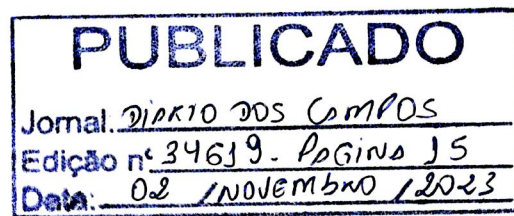 PUBLICADO
Jornal. DIÁRIO DOS CAMPOS
Edição nº 34619. PÁGINA 15
Data: 02 / NOVEMBRO / 2023